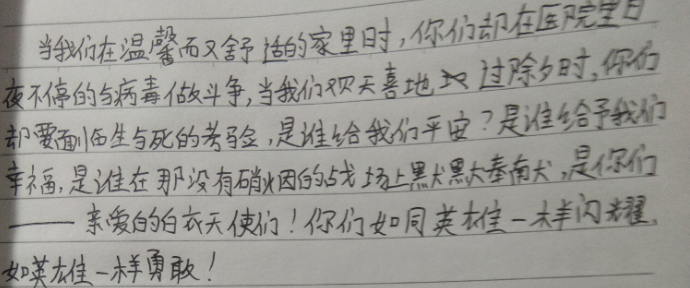 当我们在温馨而又舒适的家里时，你们却在医院里日
夜不停的与病毒做斗争，当我们欢天喜地 过除夕时，你们
却要面临生与死的考验，是谁给我们平安？是谁给予我们
幸福，是谁在那没有硝烟的战场上默默奉献，是你们
——亲爱的白衣天使们！你们如同英雄一样闪耀，
如英雄一样勇敢！